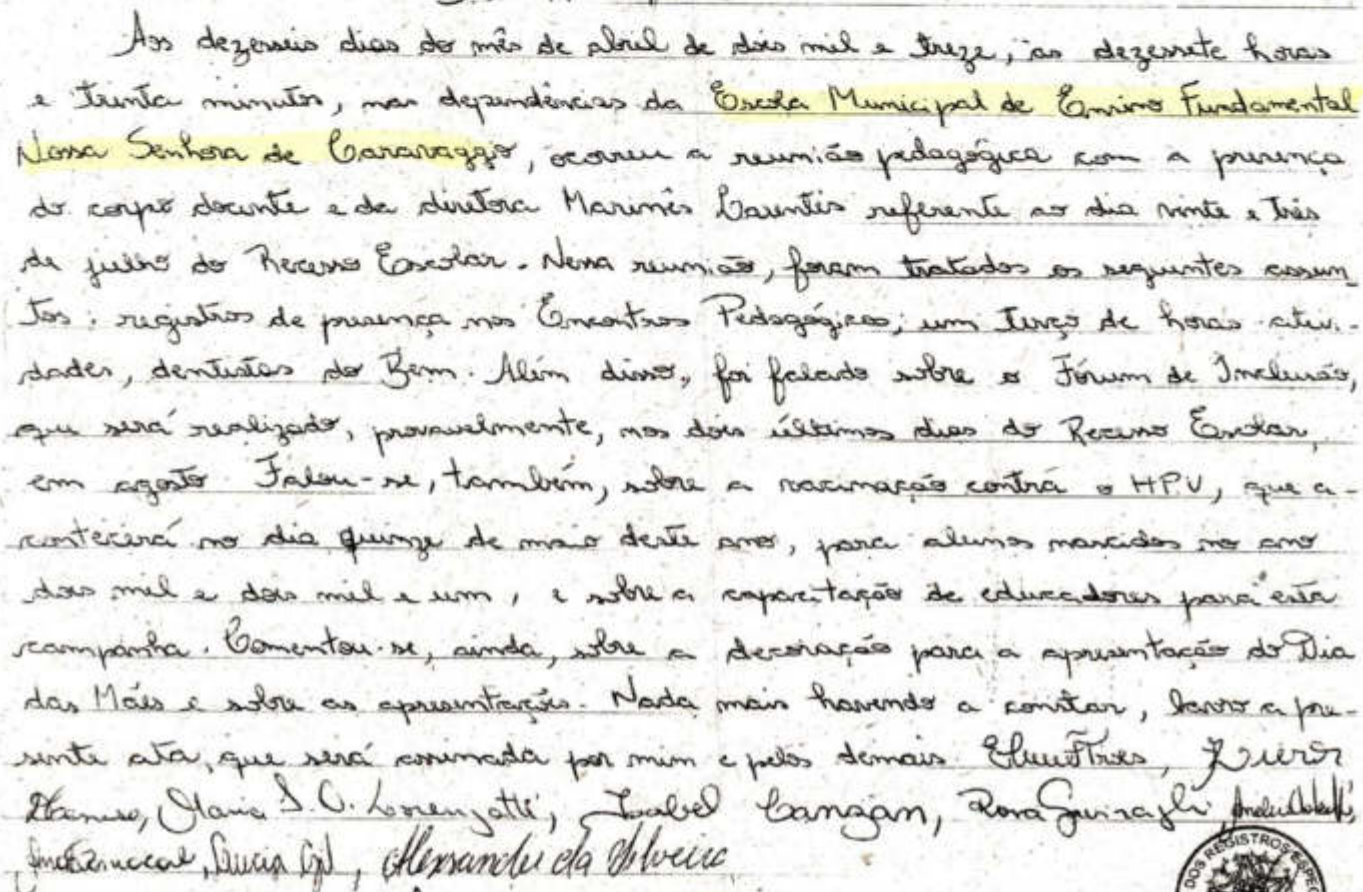 Aos dezesseis dias do mês de abril de dois mil e treze, às dezessete horas
e trinta minutos, nas dependências da Escola Municipal de Ensino Fundamental
Nossa Senhora de Caravaggio, ocorreu a reunião pedagógica com a presença
do corpo docente e da diretora Marinês referente ao dia vinte e três
de julho do Recesso Escolar. Nessa reunião, foram tratados os seguintes assun
tos: registros de presença nos Encontros Pedagógicos, um terço de horas ativi-
dades, dentistas do Bem. Além disso, foi falado sobre o Fórum de Inclusão,
que será realizado, provavelmente, nos dois últimos dias do Recesso Escolar,
em agosto. Falou-se, também, sobre a vacinação contra o HPV, que a-
contecerá no dia quinze de maio deste ano, para alunos nascidos no ano
dois mil e dois mil e um, e sobre a capacitação de educadores para esta
campanha. Comentou-se, ainda, sobre a decoração para a apresentação do Dia
das Mães e sobre as apresentações. Nada mais havendo a constar, lavro a pre-
sente ata, que será assinada por mim e pelos demais.
Maria Lorenzatti, Isabel Canzan, Rosa
Alessandra da Silveira
DOS REGISTROS ESPEC